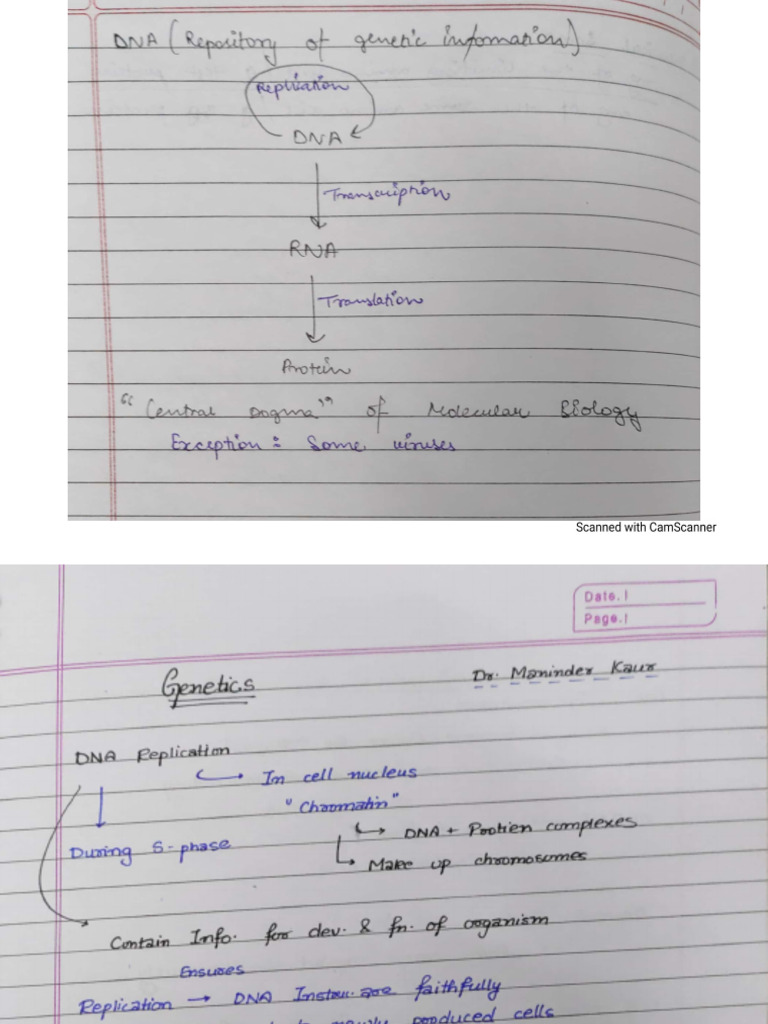 DNA (Repository of genetic information)
Replication
DNA
Transcription
RNA
Translation
Protein
"Central Dogma" of Molecular Biology
Exception: Some viruses
Scanned with CamScanner
Date.
Page.
Genetics
Dr. Maninder Kaur
DNA Replication
In cell nucleus
"Chromatin"
DNA + Protien complexes
During S-phase
Make up chromosomes
Contain Info. for dev. & fn. of organism
Ensures
Replication → DNA Instru. are faithfully
newly produced cells